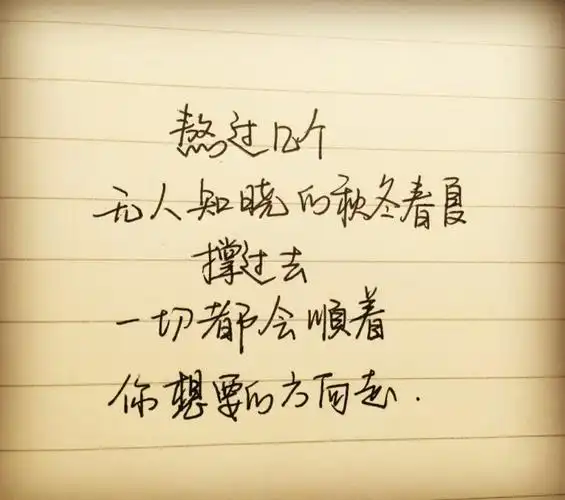 熬过几个
无人知晓的秋冬春夏
撑过去
一切都会顺着
你想要的方向走.